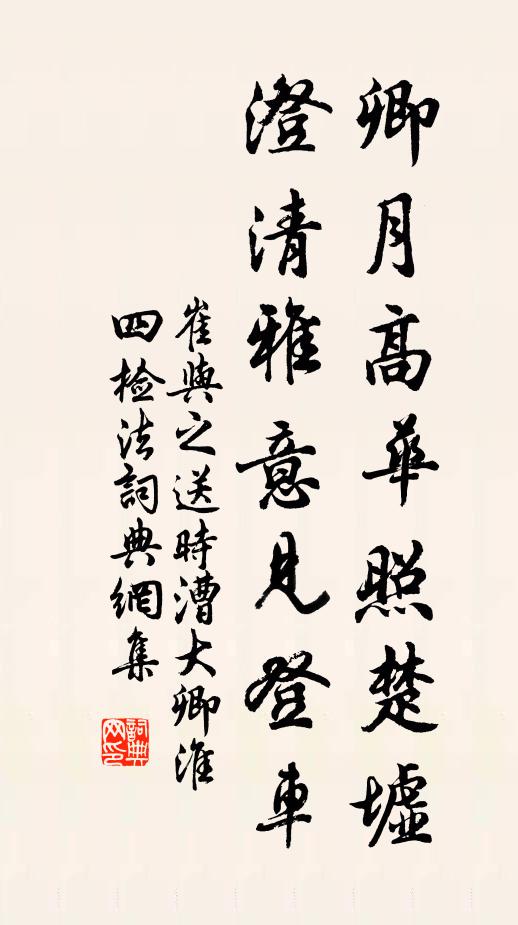 卿月高華照楚墟
澄清雅意見登車
崔與之送時漕大卿淮
四檢法詞典網集
詞典網印